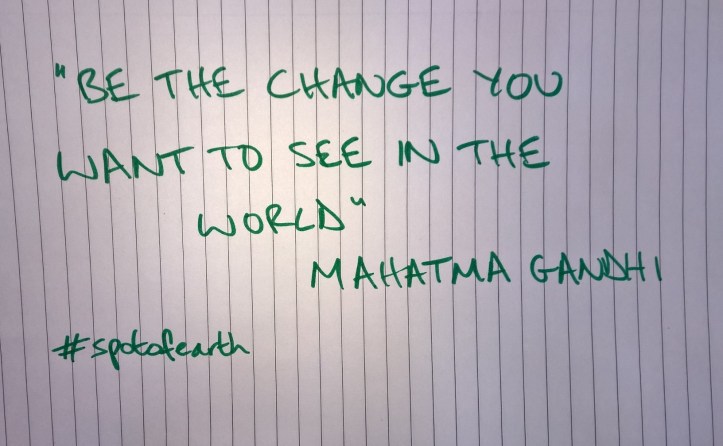 "BE THE CHANGE YOU
WANT TO SEE IN THE
WORLD"
MAHATMA GANDHI
#spotofearth